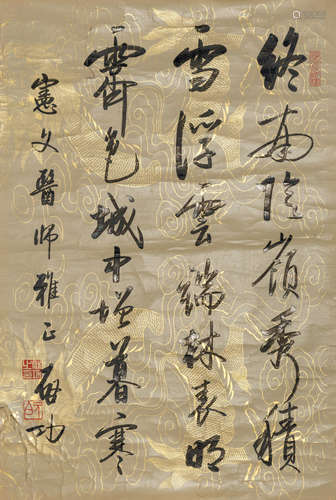 終南陰嶺秀積
雪浮雲端林表明
霽色城中增暮寒
憲文醫師雅正
啟功